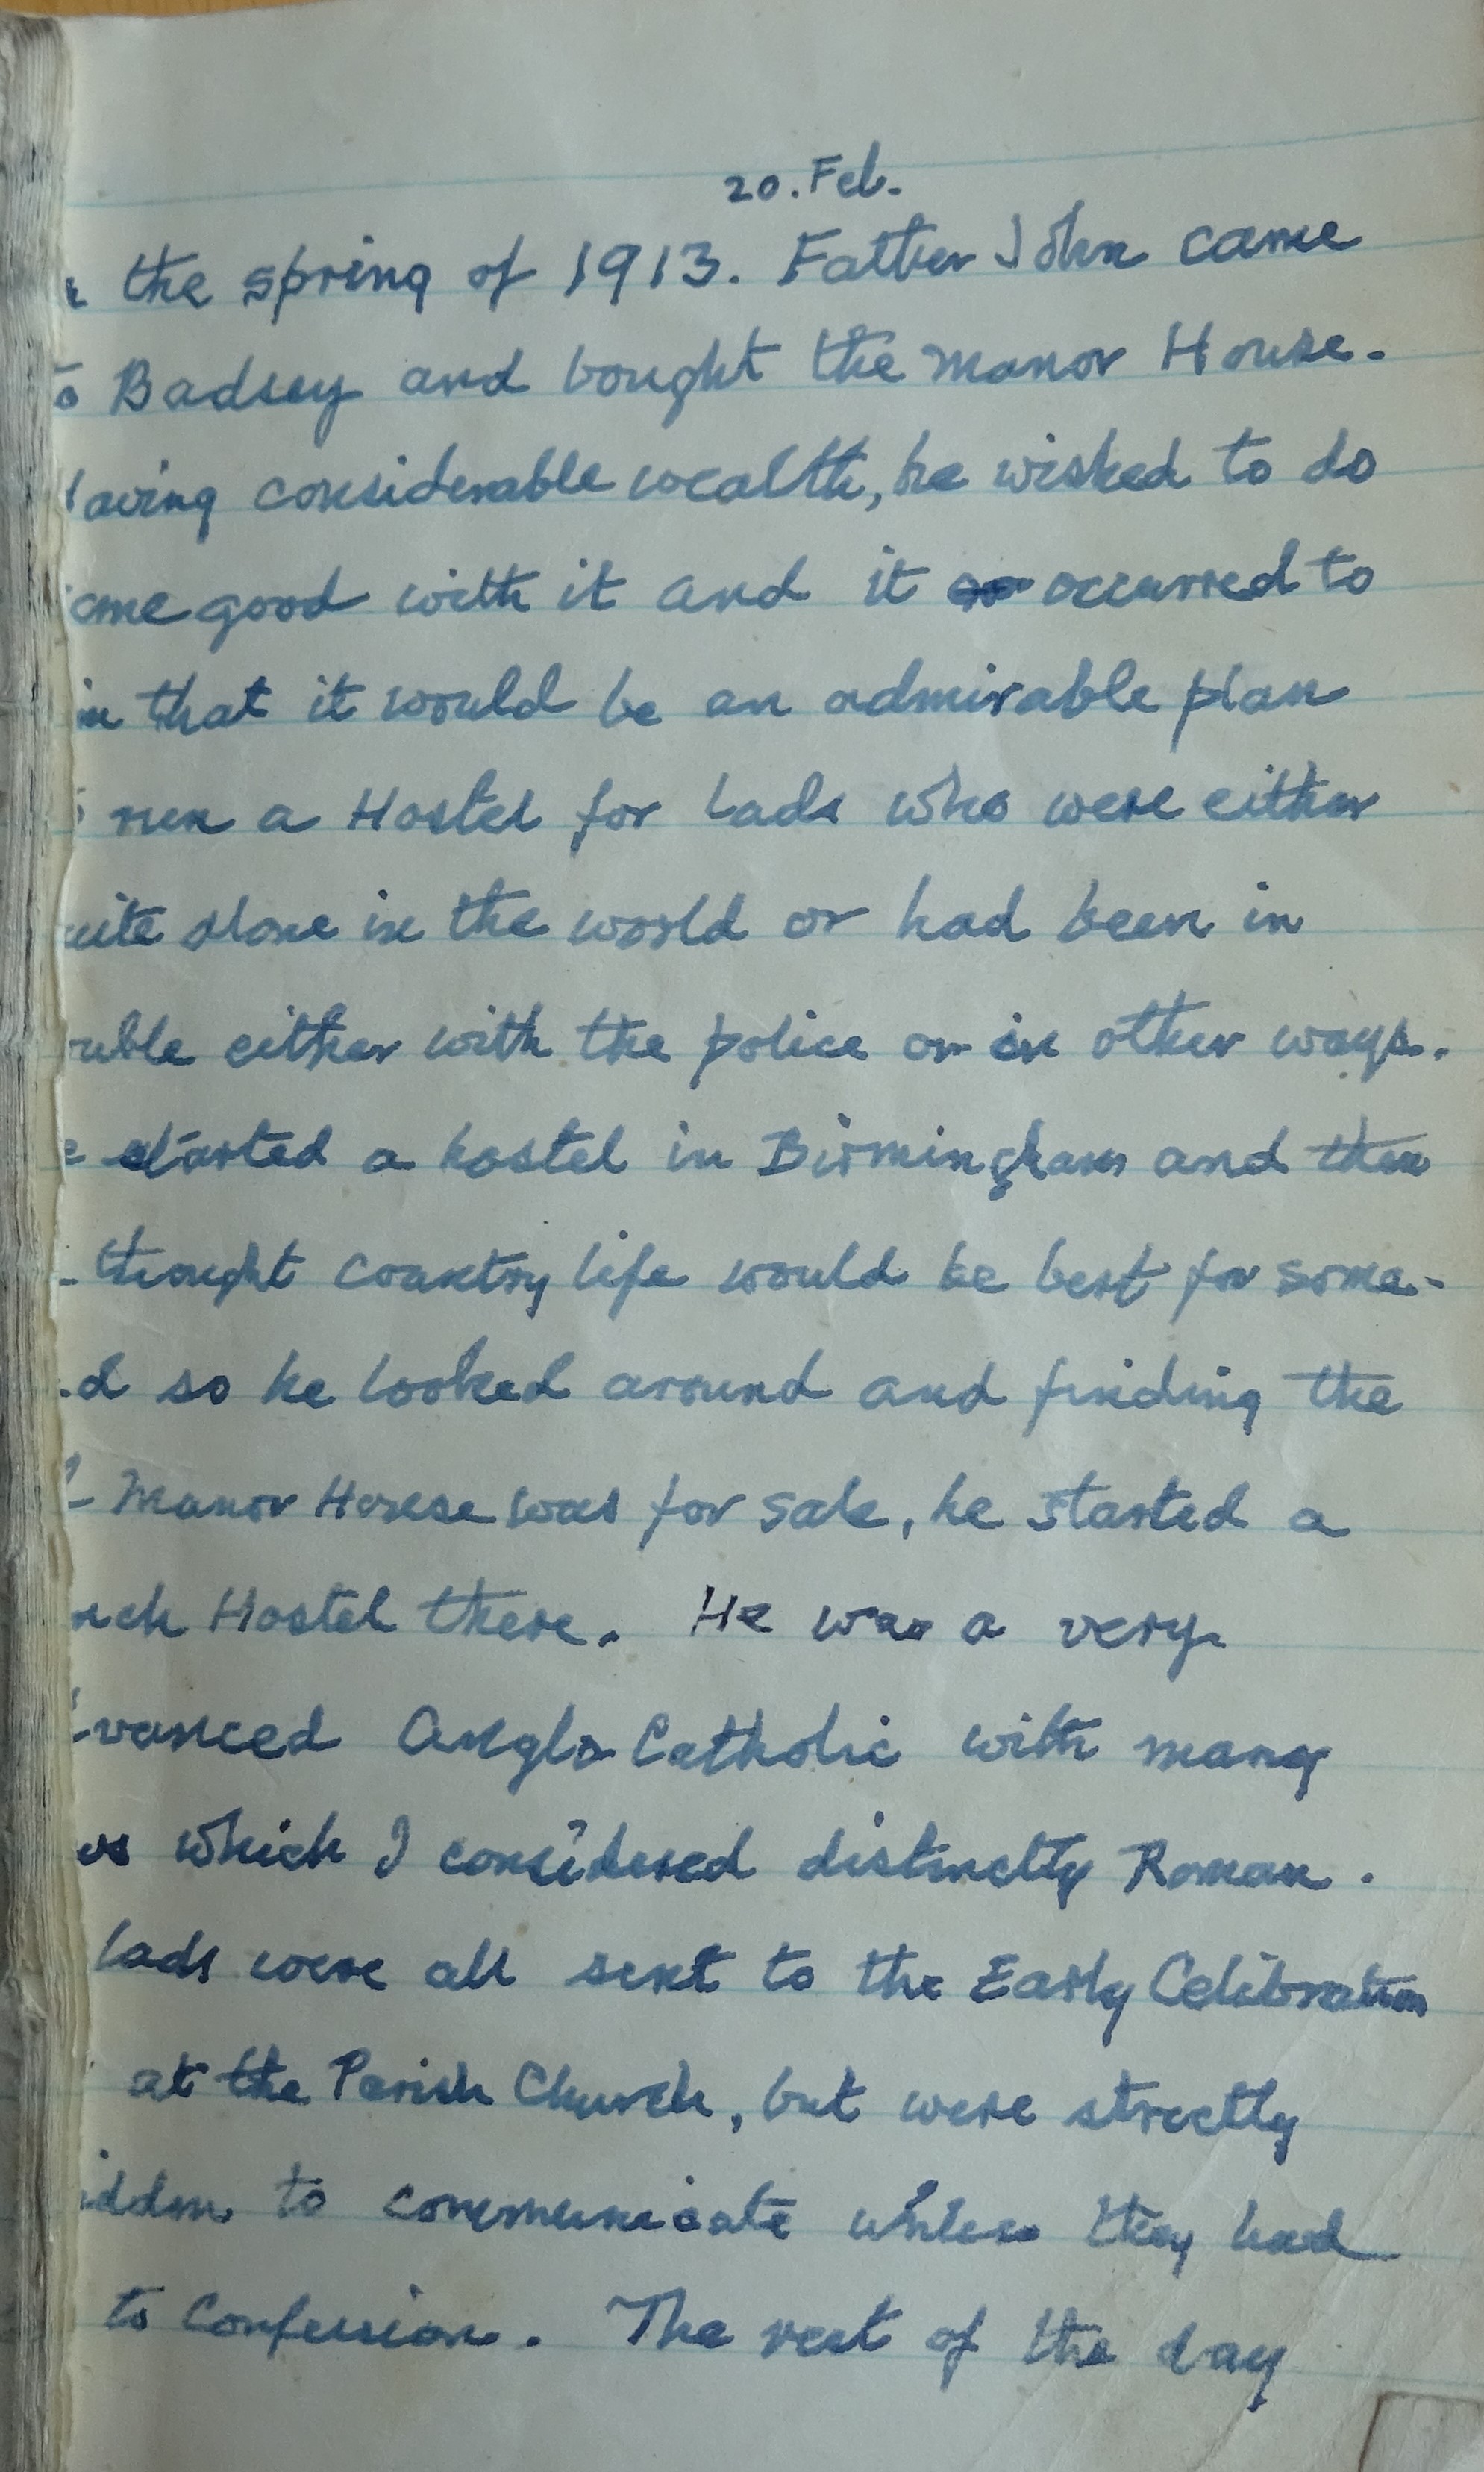 20. Feb.
the spring of 1913. Father John came
Badsey and bought the Manor House.
aving considerable wealth, he wished to do
ome good with it and it occurred to
that it would be an admirable plan
run a Hostel for Lads who were either
uite alone in the world or had been in
uble either with the police or in other ways.
started a hostel in Birmingham and then
thought country life would be best for some-
d so he looked around and finding the
Manor House was for sale, he started a
nch Hostel there. He was a very
vanced Anglo Catholic with many
ws which I considered distinctly Roman.
lads were all sent to the Early Celibration
at the Parish Church, but were strictly
idden to communicate unless they had
to Confession. The rest of the day